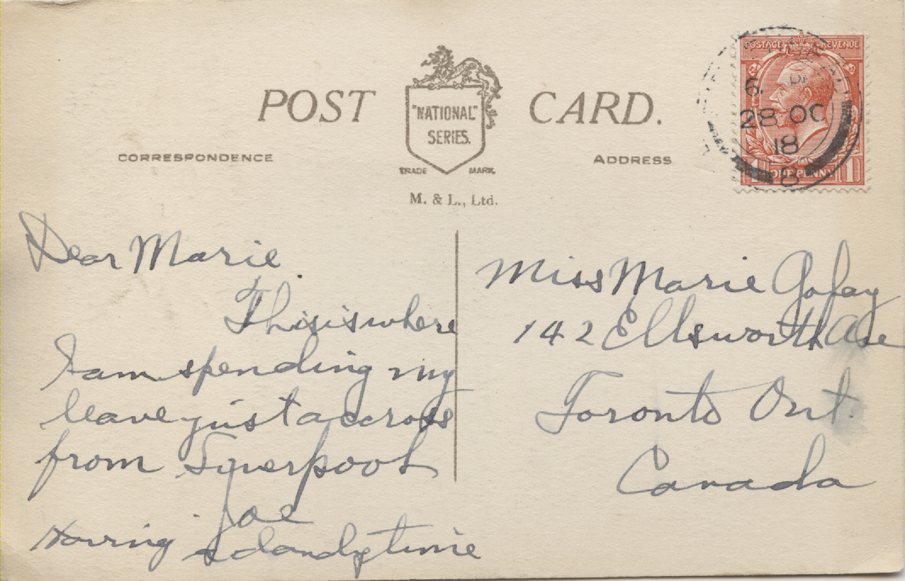 POST CARD.
"NATIONAL"
SERIES.
TRADE MARK.
M. & L., Ltd.
CORRESPONDENCE
ADDRESS
POSTAGE REVENUE
28 OC
18
1 ONE PENNY 1
Dear Marie
This is where
I am spending my
leave just accross
from Liverpool
Joe
Having a dandy time
Miss Marie
142 Ellsworth Ave
Toronto Ont.
Canada